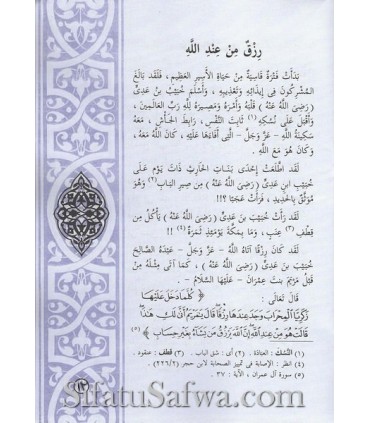 رِزْقٌ مِنْ عِنْدِ اللَّهِ
بَدَأَتْ فَتْرَةٌ قَاسِيَةٌ مِنْ حَيَاةِ الأَسِيرِ العَظِيمِ، فَلَقَدْ بَالَغَ
المُشْرِكُونَ فِى إِيذَائِهِ وَتَعْذِيبِهِ، وَأَسْلَمَ خُبَيْبُ بْنُ عَدِىٍّ
(رَضِىَ اللَّهُ عَنْهُ) قَلْبَهُ وَأَمْرَهُ وَمَصِيرَهُ لِلَّهِ رَبِّ العَالَمِينَ،
وَأَقْبَلَ عَلَى نُسُكِهِ (١) ثَابِتَ النَّفْسِ، رَابِطَ الجَأْشِ، مَعَهُ
سَكِينَةُ اللَّهِ - عَزَّ وَجَلَّ - الَّتِى أَفَاءَهَا عَلَيْهِ، كَانَ اللَّهُ مَعَهُ،
وَكَانَ هُوَ مَعَ اللَّهِ.
لَقَدِ اطَّلَعَتْ إِحْدَى بَنَاتِ الحَارِثِ ذَاتَ يَوْمٍ عَلَى
خُبَيْبِ ابنِ عَدِىٍّ (رَضِىَ اللَّهُ عَنْهُ) مِن صِيرِ البَابِ (٢) وَهُوَ
مُوثَقٌ بِالحَدِيدِ، فَرَأَتْ عَجَبًا !!!
لَقَدْ رَأَتْ خُبَيْبَ بنَ عَدِىٍّ (رَضِىَ اللَّهُ عَنْهُ) يَأْكُلُ مِن
قِطْفِ (٣) عِنَبٍ، وَمَا بِمَكَّةَ يَوْمَئِذٍ ثَمَرَةٌ (٤) !!
لَقَدْ كَانَ رِزْقًا آتَاهُ اللَّهُ - عَزَّ وَجَلَّ - عَبْدَهُ الصَّالِحَ
خُبَيْبَ بْنَ عَدِىٍّ (رَضِىَ اللَّهُ عَنْهُ)، كَمَا آتَى مِثْلَهُ مِنْ
قَبْلُ مَرْيَمَ بِنتَ عِمْرَانَ - عَلَيْهَا السَّلَامُ - .
قَالَ تَعَالَى : ﴿ كُلَّمَا دَخَلَ عَلَيْهَا
زَكَرِيَّا الْمِحْرَابَ وَجَدَ عِندَهَا رِزْقًا قَالَ يَا مَرْيَمُ أَنَّى لَكِ هَذَا
قَالَتْ هُوَ مِنْ عِندِ اللَّهِ إِنَّ اللَّهَ يَرْزُقُ مَن يَشَاءُ بِغَيْرِ حِسَابٍ ﴾ (٥)
(١) النُّسُكُ : العِبَادَة. (٢) أى : شق الباب. (٣) قِطْف : عنقود.
(٤) انظر : الإصابة فى تمييز الصحابة لابن حجر (٢٢٦/٢)
(٥) سورة آل عمران ، الآية : ٣٧ .
SifatuSafwa.com